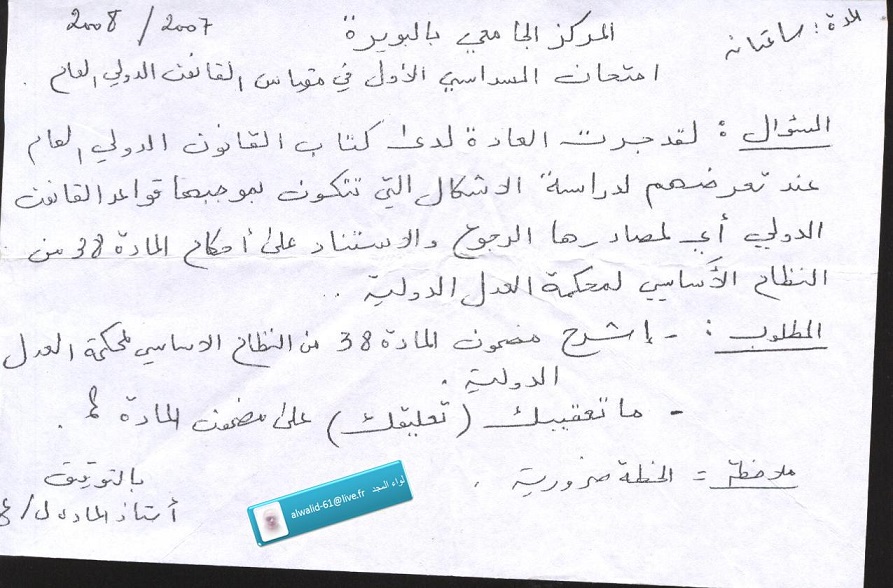 المدة: ساعتان
2008 / 2007
المركز الجامعي بالبويرة
امتحان السداسي الأول في مقياس القانون الدولي العام .
السؤال : لقد جرت العادة لدى كتاب القانون الدولي العام
عند تعرضهم لدراسة الاشكال التي تتكون بموجبها قواعد القانون
الدولي أي لمصادرها الرجوع والاستناد على أحكام المادة 38 من
النظام الأساسي لمحكمة العدل الدولية ..
المطلوب : - إشرح مضمون المادة 38 من النظام الاساسي لمحكمة العدل
الدولية .
- ما تعقيبك (تعليقك) على مضمون المادة ؟ .
ملاحظة = الخطة ضرورية .
بالتوفيق
أستاذ المادة
لواء المجد alwalid-61@live.fr